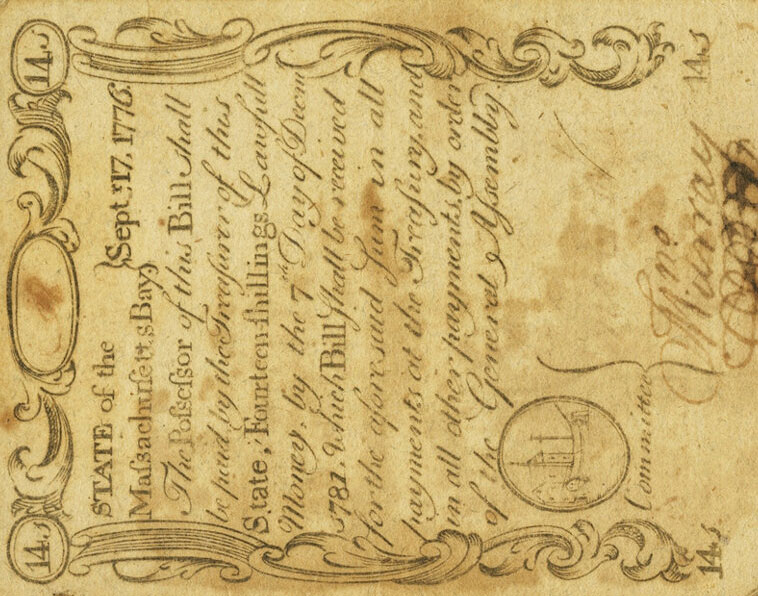 14.s 14.s
STATE of the
Maſsachuſetts Bay } Sept.r 17. 1776.
The Poſseſsor of this Bill shall
be paid by the Treaſurer of this
State, Fourteen ſhillings Lawfull
Money, by the 7th Day of Decm
1781. which Bill ſhall be received
for the aforesaid ſum in all
payments at the Treaſury, and
in all other payments, by order
of the General Aſsembly.
Committee }
14s. 14s